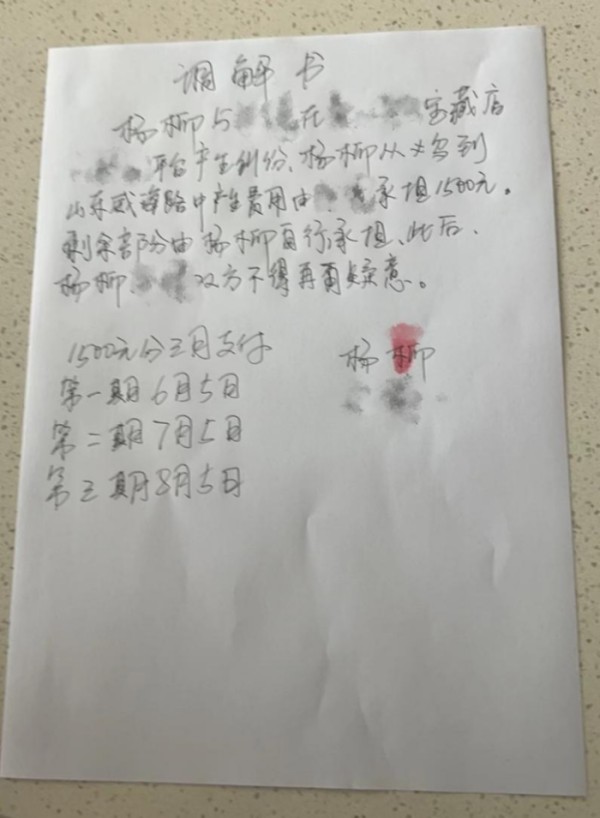 调解书
杨柳与 在 宝藏店
平台产生纠份、杨柳从义乌到
山东威海路中产生费用由 承担1500元。
剩余部份由杨柳自行承担、此后、
杨柳、 双方不得再有疑意。
1500元分三月支付
第一期6月5日
第二期7月5日
第三期8月5日
杨柳